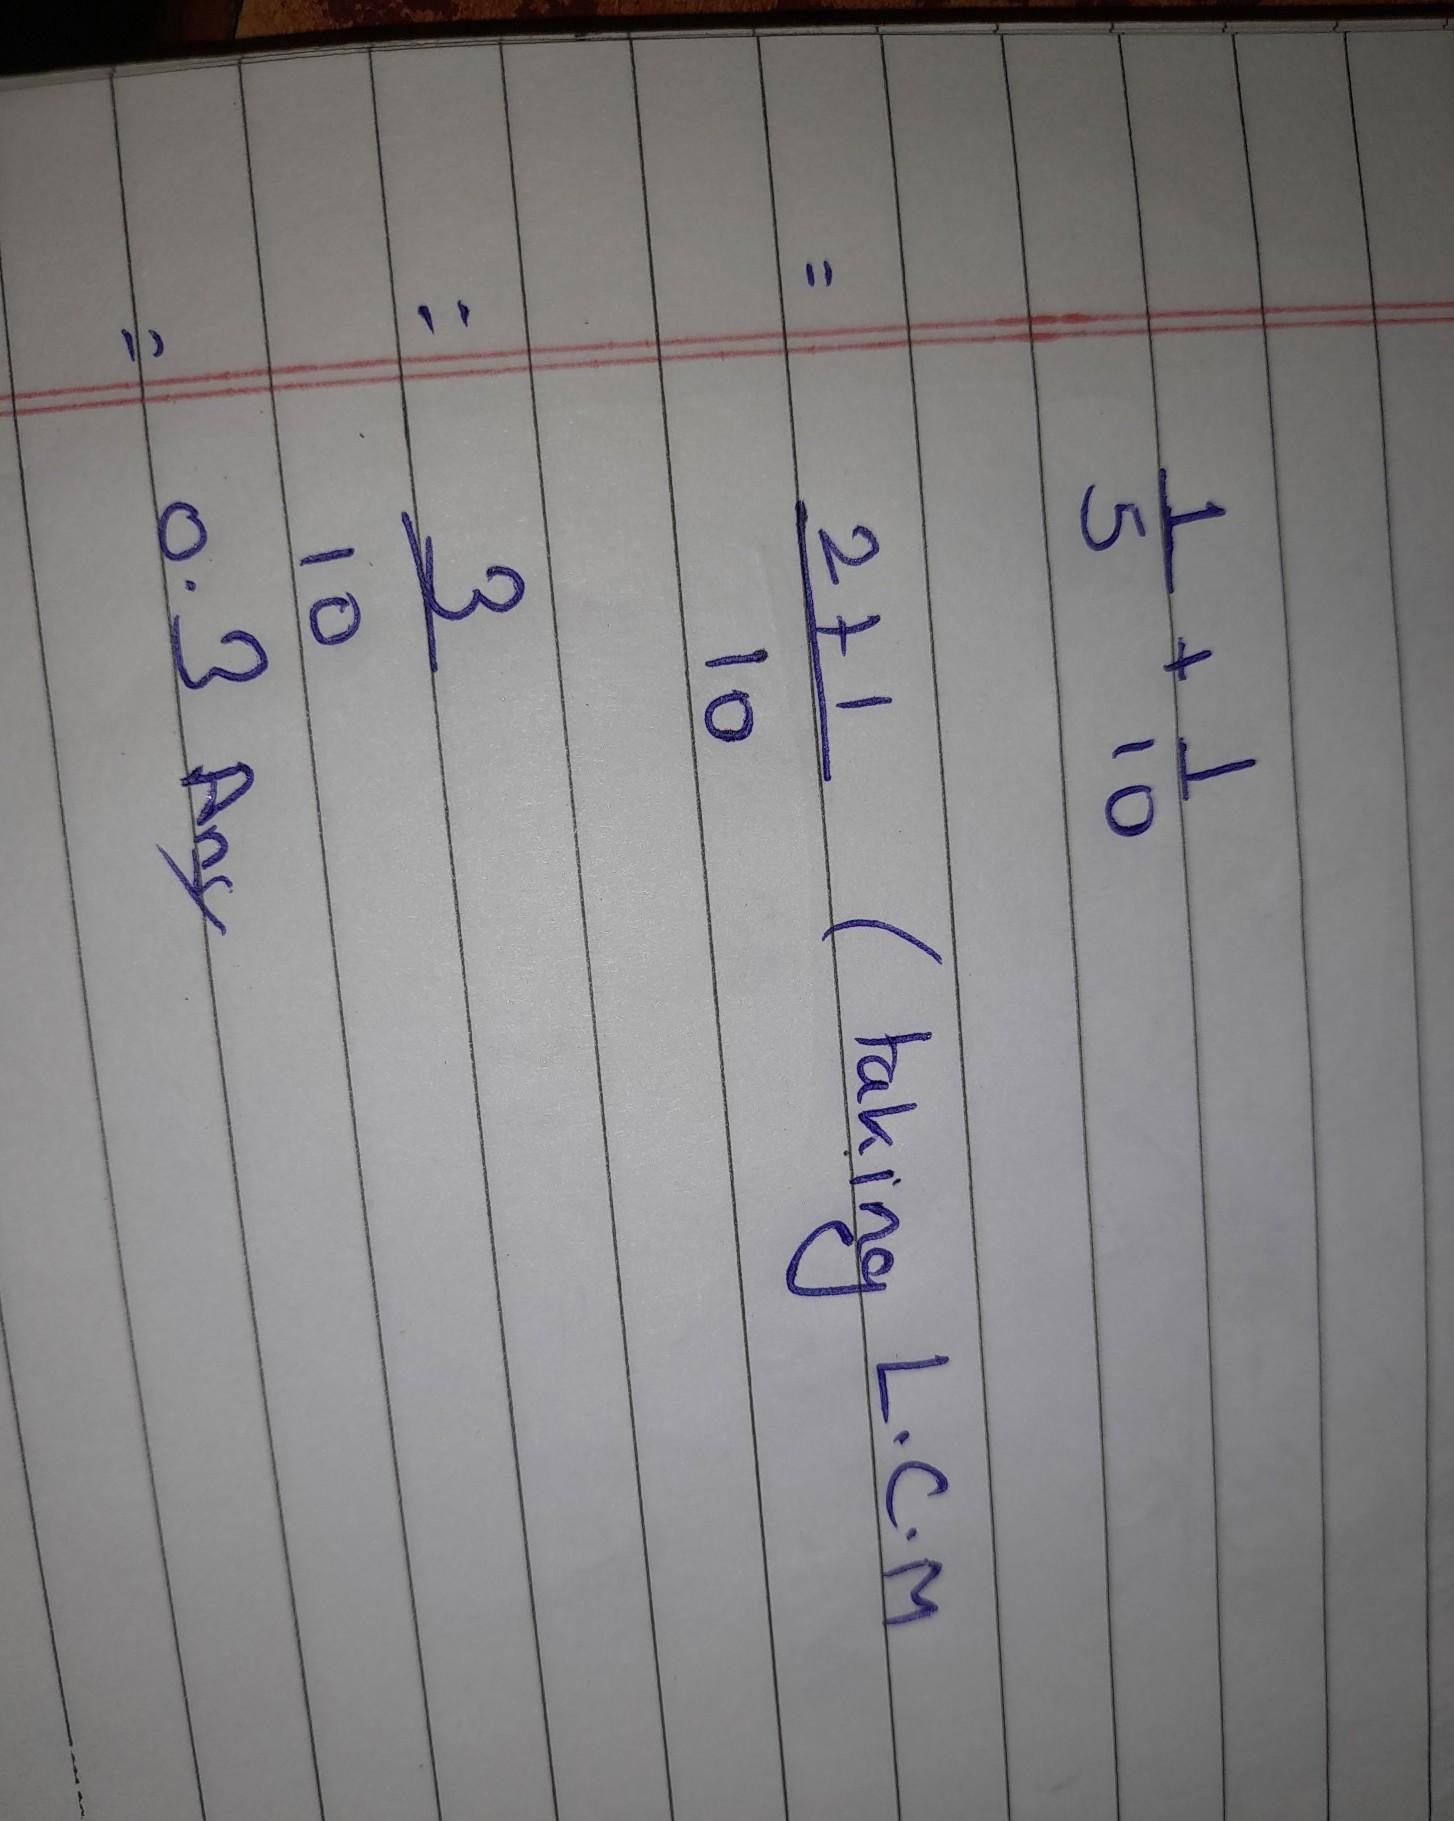 1/5 + 1/10
= 2+1/10 (taking L.C.M
= 3/10
= 0.3 Ans